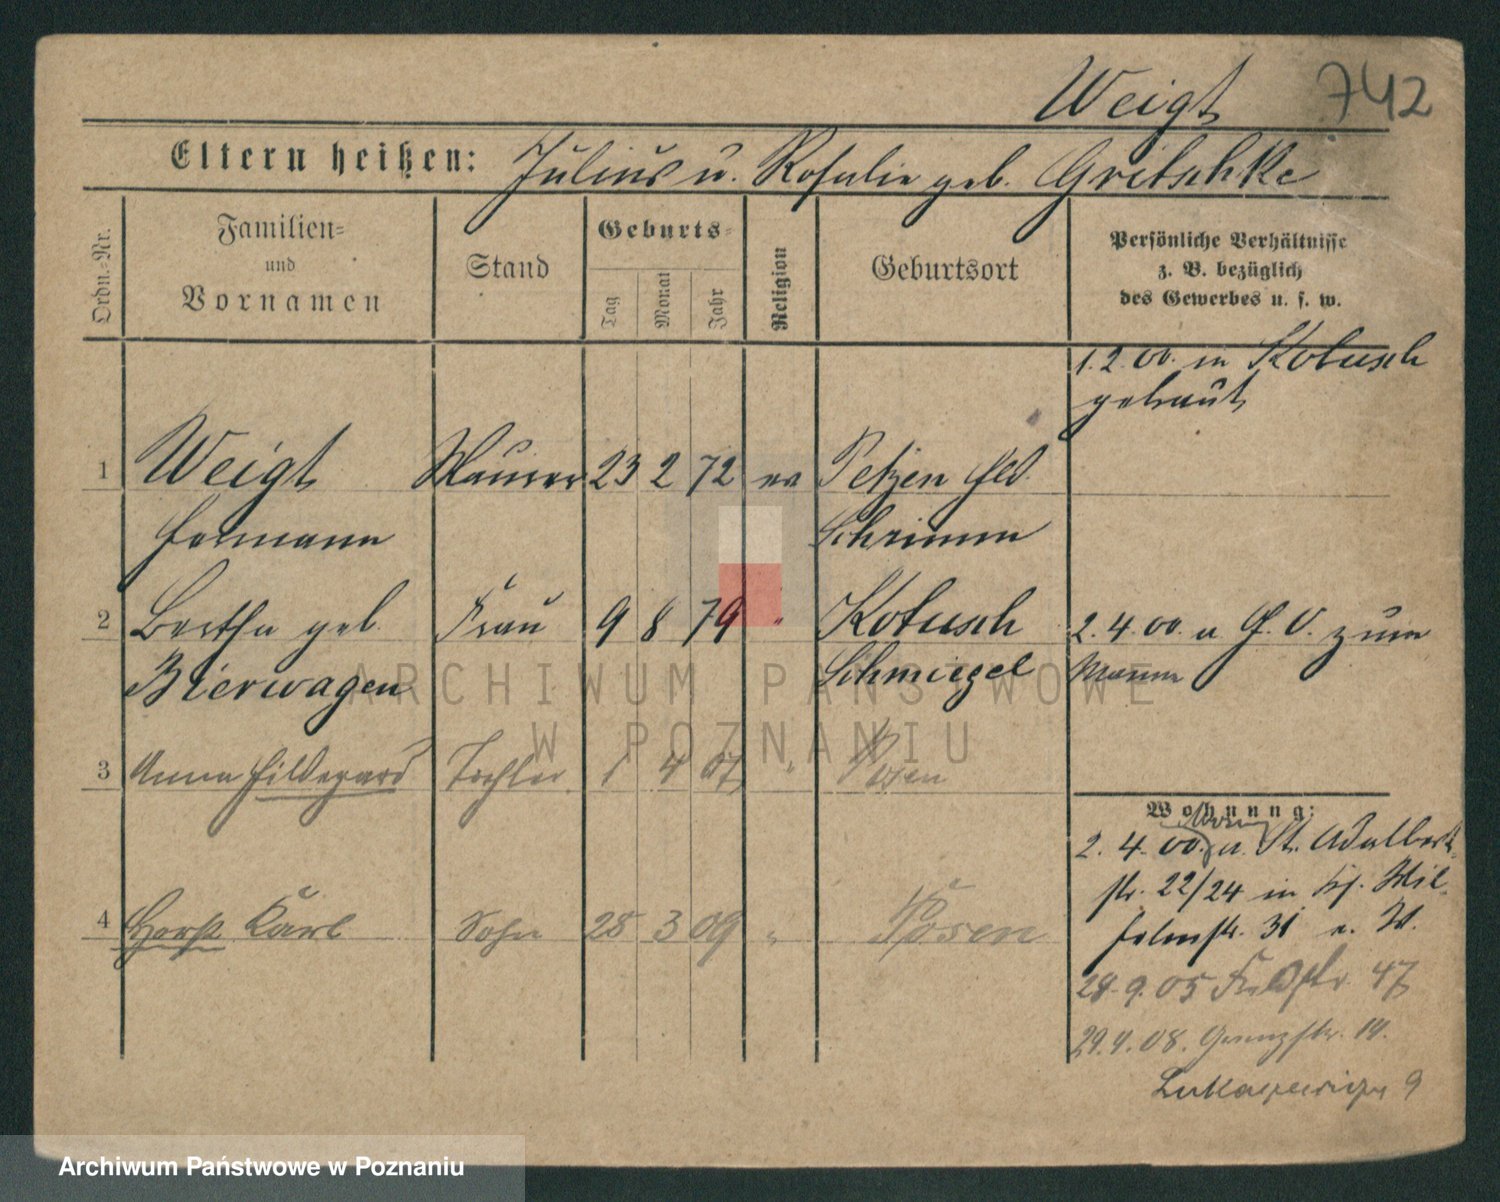 Weigt 742
Eltern heißen: Julius u. Rosalie geb. Gritschke
Ordn.-Nr.
Familien-
und
Vornamen
Stand
Geburts-
Tag Monat Jahr
Religion
Geburtsort
Persönliche Verhältnisse
z. B. bezüglich
des Gewerbes u. s. w.
1.2.00. in Kotusch
getraut
1 Weigt Maurer 23 2 72 ev Petzen
Hermann Schrimm
2 Bertha geb. Frau 9 8 79 " Kotusch 2.4.00. a. zum
Bierwagen Schmiegel Mann
3 Anna Hildegard Tochter 1 4 07 " Posen
4 Horst Karl Sohn 28 3 09 " Posen
Wohnung:
2. 4. 00. a. St. Adalbert-
str. 22/24 in Wil-
helmstr. 31
28.9.05 Feldstr. 47
29.4.08. Grenzstr. 14.
Lukaszewicza 9
ARCHIWUM PAŃSTWOWE
W POZNANIU
Archiwum Państwowe w Poznaniu